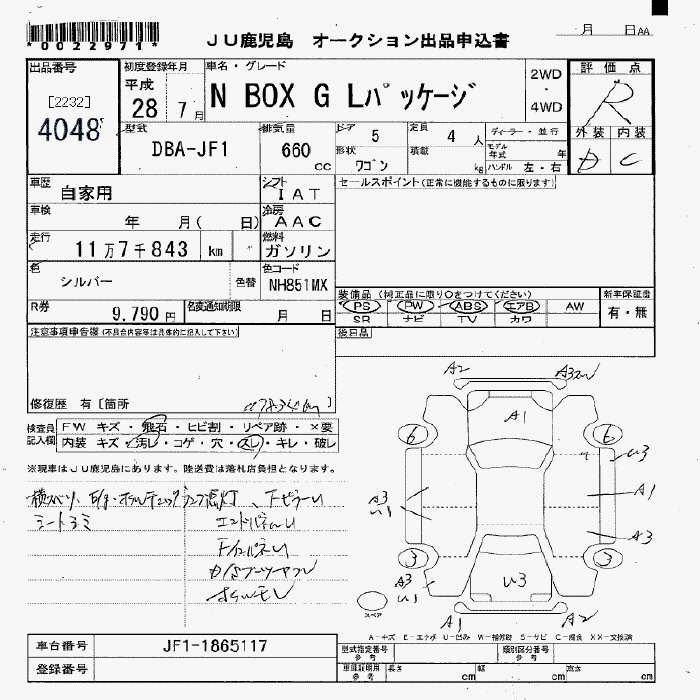 *0022971*
JU鹿児島 オークション出品申込書
月 日AA
出品番号
[2232]
4048
初度登録年月
平成
28 7月
車名・グレード
N BOX G Lパッケージ
2WD
・
4WD
評価点
R
外装 内装
D C
型式
DBA-JF1
排気量
660
cc
ドア 5
形状 ワゴン
定員 4 人
積載 kg
ディーラー・並行
モデル年式 年
ハンドル 左・右
車歴
自家用
シフト
IAT
セールスポイント(正常に機能するものに限ります)
車検
年 月( 日)
冷房
AAC
走行
11万7千843 km
燃料
ガソリン
色
シルバー
色替
色コード
NH851MX
装備品(純正品に限り○をつけてください)
PS PW ABS エアB AW
SR ナビ TV カワ
新車保証書
有・無
R券
9,790 円
名変通知期限
月 日
後日品
注意事項申告欄(不具合内容等は具体的に記入して下さい)
修復歴 有[箇所 ]
検査員記入欄
FW キズ・飛石・ヒビ割・リペア跡・×要
内装 キズ・汚レ・コゲ・穴・スレ・キレ・破レ
※現車はJU鹿児島にあります。陸送費は落札店負担となります。
シートヨミ
A2
A1
6
6
U3
A3
U1
A1
A3
3
3
A3
U1
U3
スペア
A1
A2
A-キズ E-エクボ U-凹み W-補修跡 S-サビ C-腐食 XX-交換済
車台番号 JF1-1865117
登録番号
型式指定番号 参考
類別区分番号 参考
車庫証明用 参考
長さ cm
幅 cm
高さ cm